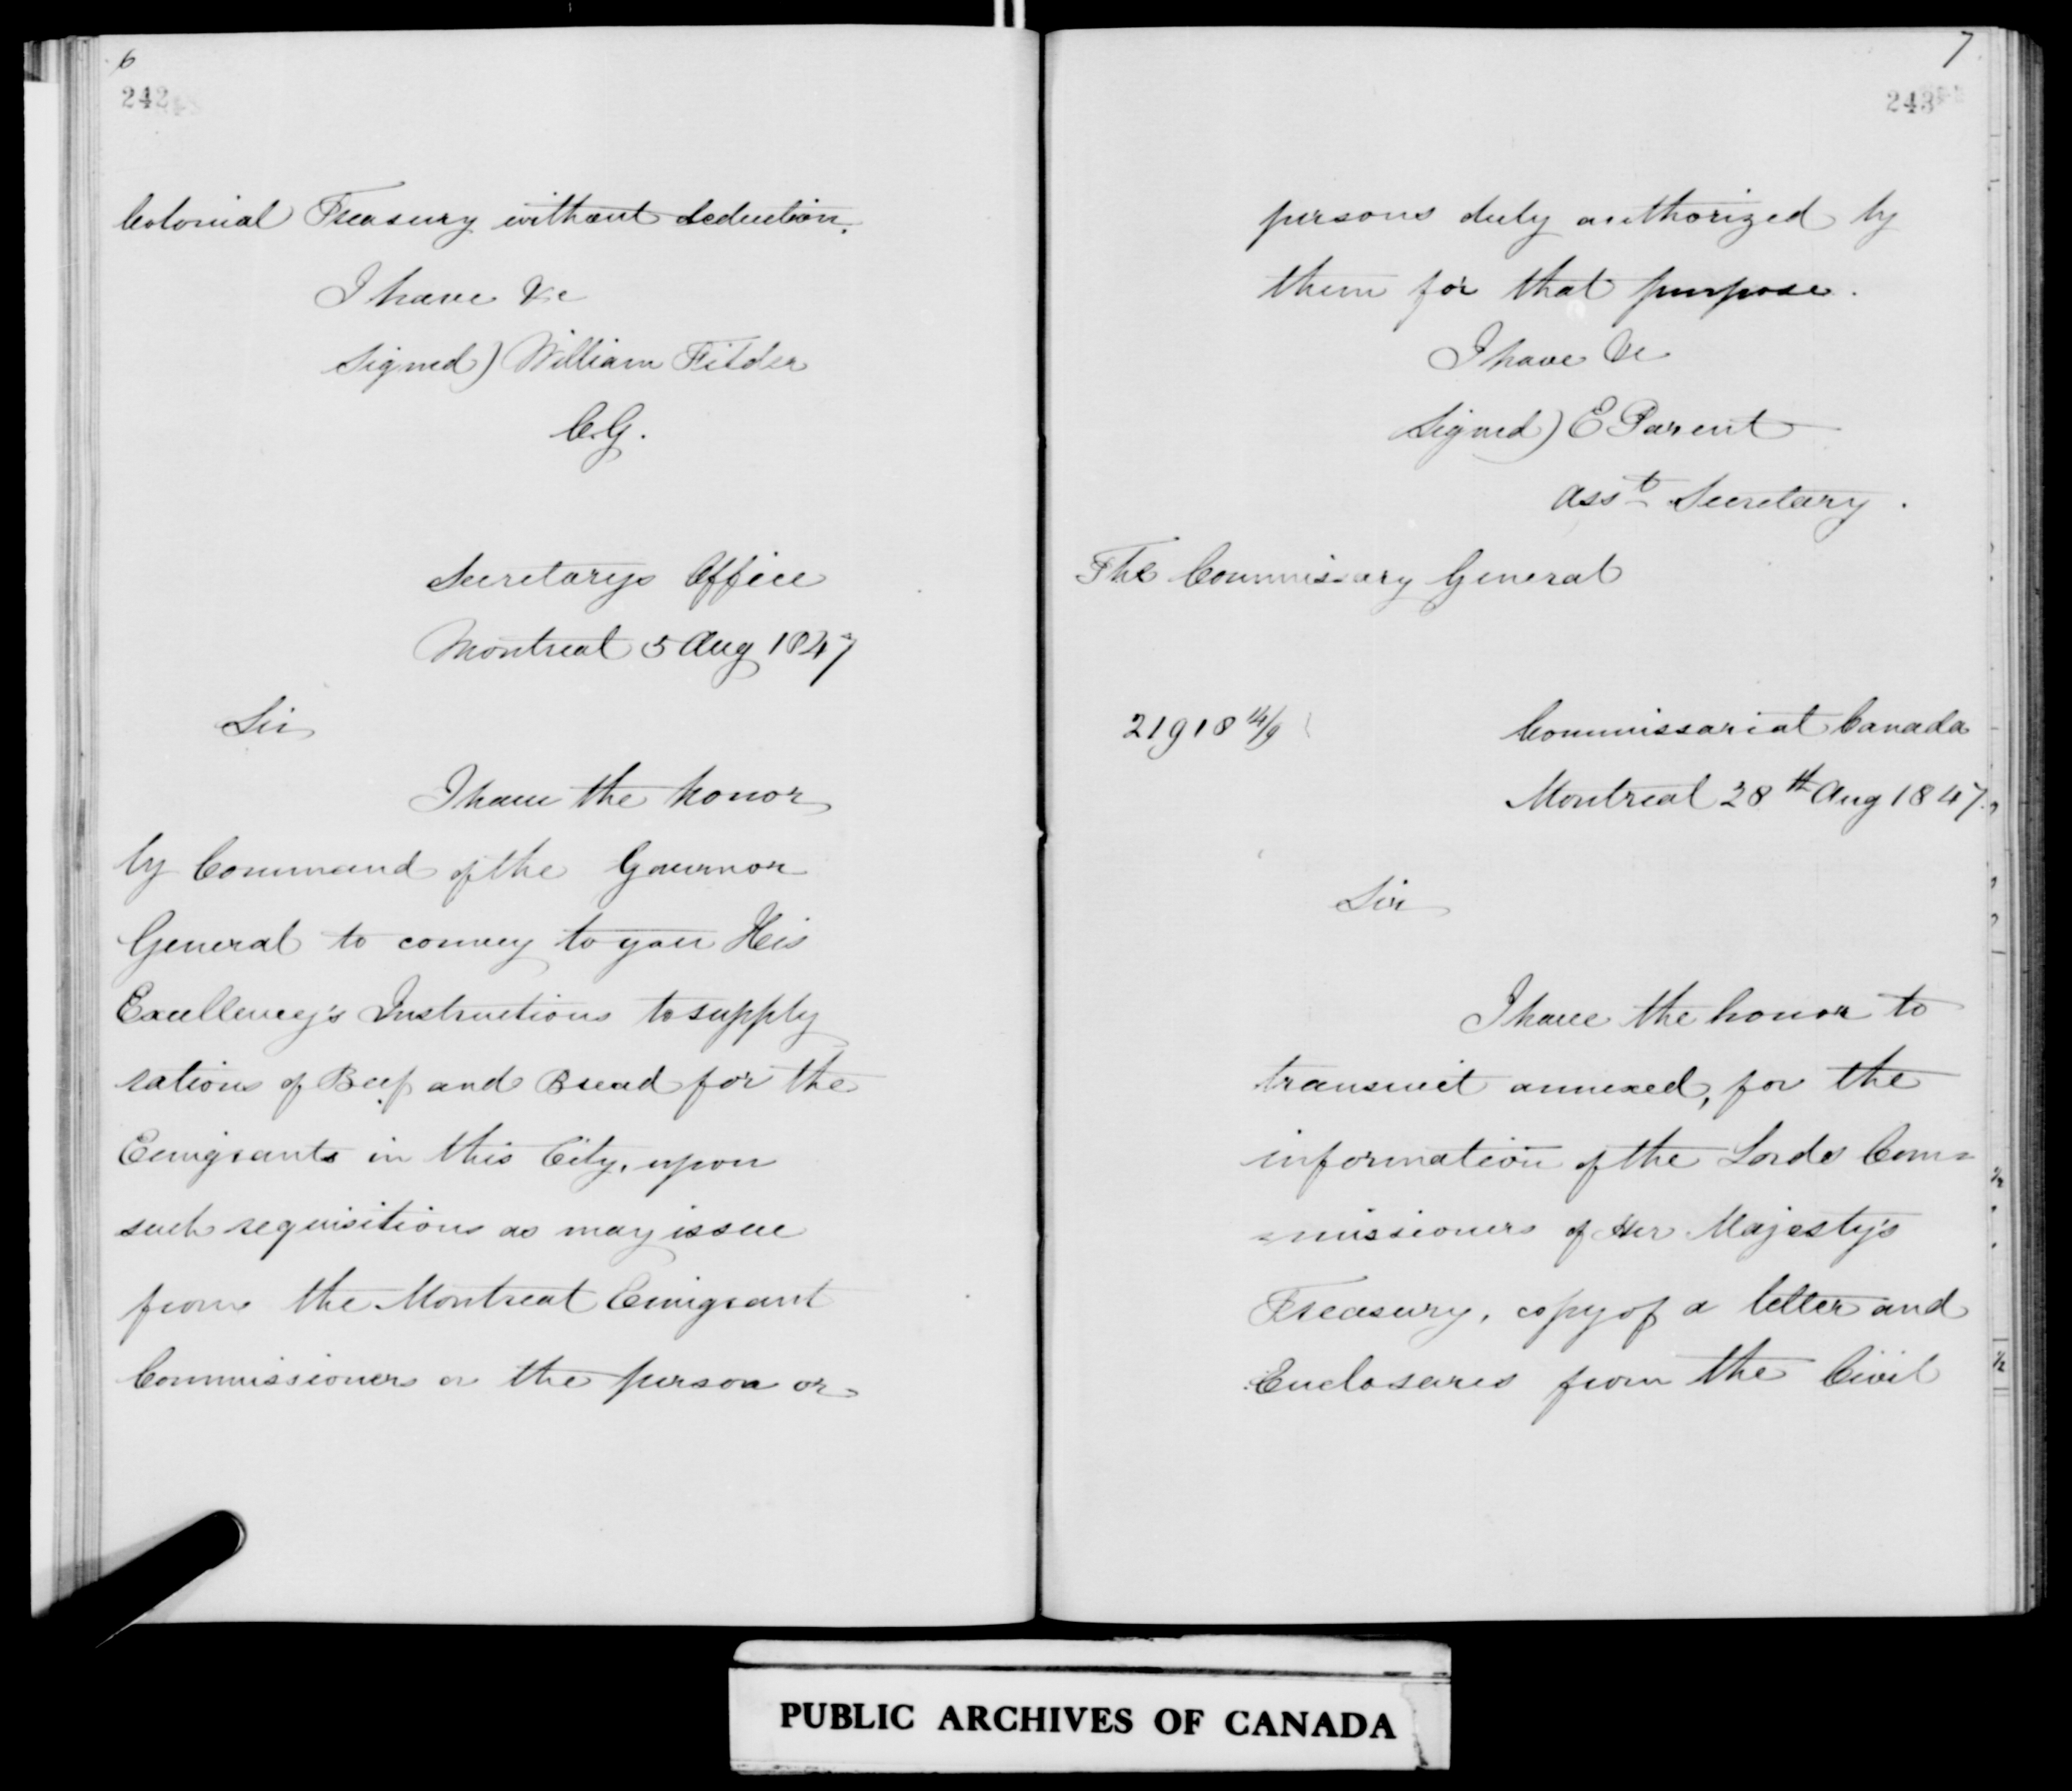 6
242
Colonial Treasury without deduction.
I have &c
Signed) William Filder
C.G.
Secretarys Office
Montreal 5 Aug 1847
Sir
I have the honor
by Command of the Governor
General to convey to you His
Excellency's Instructions to supply
rations of Beef and Bread for the
Emigrants in this City, upon
such requisitions as may issue
from the Montreal Emigrant
Commissioners or the person or
7
243
persons duly authorized by
them for that purpose.
I have &c
Signed) E Parent
Asst Secretary.
The Commissary General
21918 14/9
Commissariat Canada
Montreal 28th Aug 1847
Sir
I have the honor to
transmit annexed, for the
information of the Lords Com=
=missioners of Her Majesty's
Treasury, copy of a letter and
Enclosures from the Civil
PUBLIC ARCHIVES OF CANADA